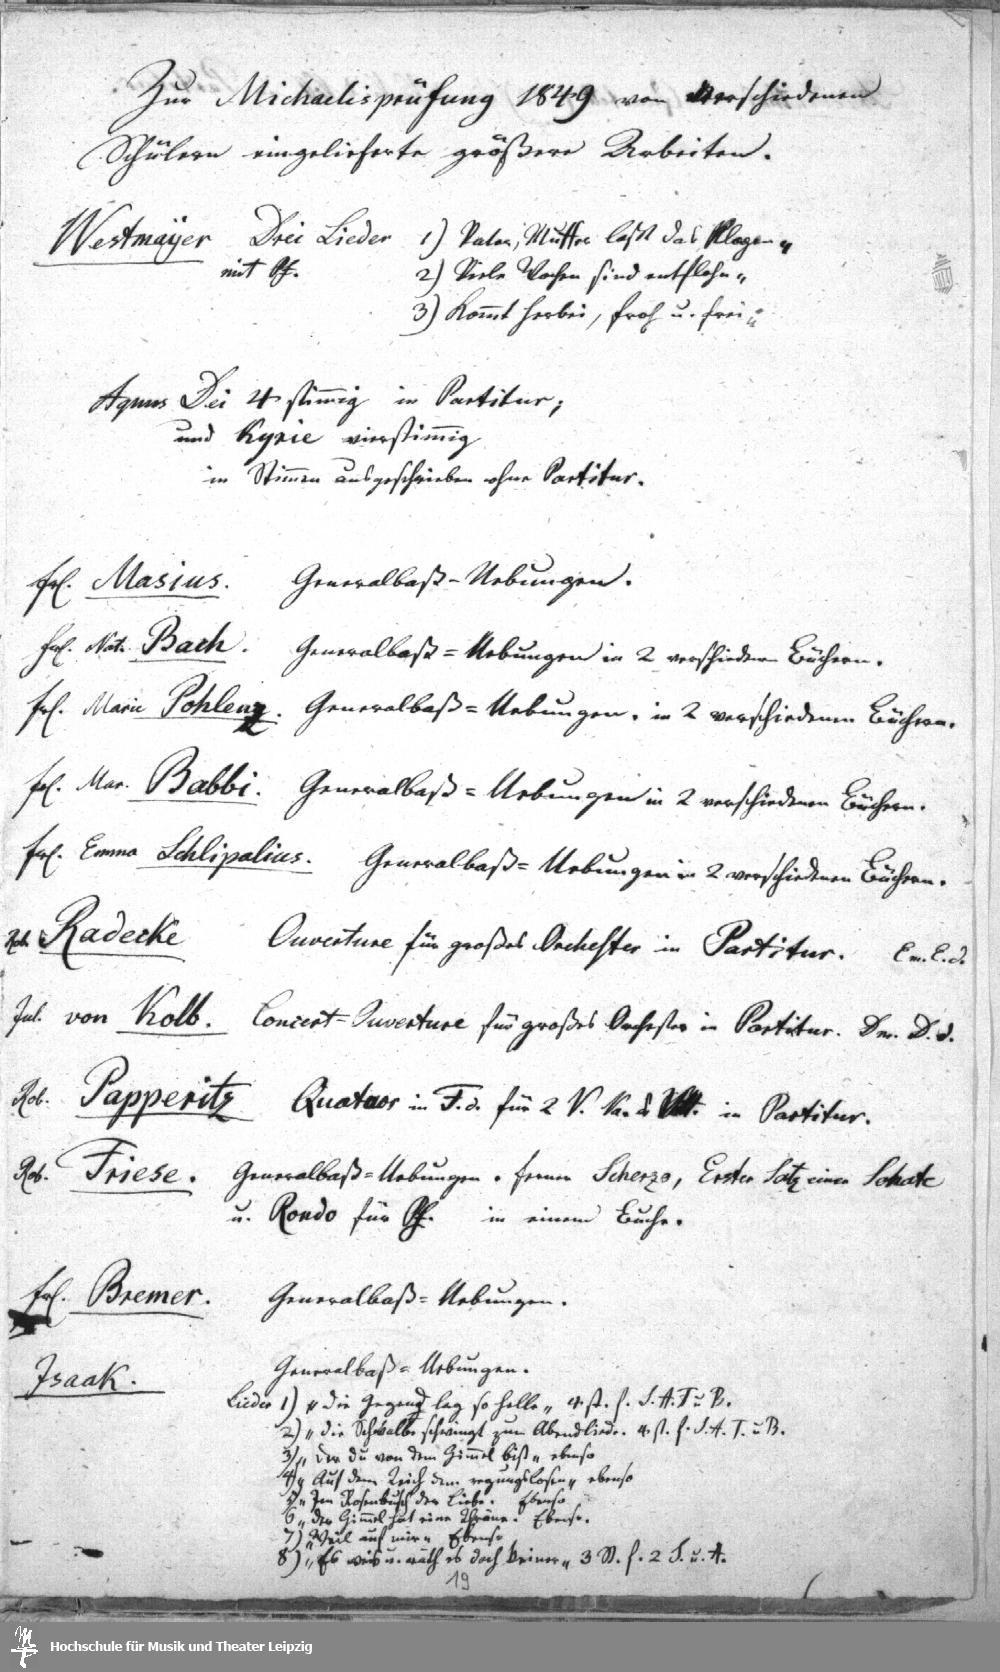 Zur Michaelisprüfung 1849 von verschiedenen
Schülern eingelieferte größere Arbeiten.
Westmayer Drei Lieder 1) Vater, Mutter laßt das Klagen"
mit Pf. 2) Viele Wochen sind entflohn"
3) Kom̅t herbei, froh u. frei"
Agnus Dei 4 stim̅ig in Partitur;
und Kyrie vierstim̅ig
in Stim̅en ausgeschrieben ohne Partitur.
Frl. Masius. Generalbaß-Uebungen.
Frl. Nat. Bach. Generalbaß=Uebungen in 2 verschiedenen Büchern.
Frl. Marie Pohlenz. Generalbaß=Uebungen. in 2 verschiedenen Büchern.
Frl. Mar. Babbi. Generalbaß=Uebungen in 2 verschiedenen Büchern.
Frl. Emma Schlipalius. Generalbaß=Uebungen in 2 verschiedenen Büchern.
Rob. Radecke Ouverture für großes Orchester in Partitur. Em. E. d.
Jul. von Kolb. Concert=Ouverture für großes Orchester in Partitur. Dm. D. d.
Rob. Papperitz Quatuor in F. d. für 2 V. Va. u. in Partitur.
Rob. Friese. Generalbaß=Uebungen. ferner Scherzo, Erster Satz einer Sonate
u. Rondo für Pf. in einem Buche.
Frl. Bremer. Generalbaß=Uebungen.
Isaak. Generalbaß=Uebungen.
Lieder 1) "die Gegend lag so helle" 4 st. f. S. A. T u B.
2) "die Schwalbe schwingt zum Abendliede. 4 st. f. S. A. T. u B.
3) "Der du von dem Him̅el bist" ebenso
4) "Auf dem Teich dem regungslosen" ebenso
5 "Im Rosenbusch der Liebe. Ebenso
6 "der Him̅el hat eine Thräne. Ebenso.
7) "Weil auf mir" Ebenso
8) "Es weis u. räth es doch keiner" 3 St. f. 2 S. u. A.
19
Hochschule für Musik und Theater Leipzig